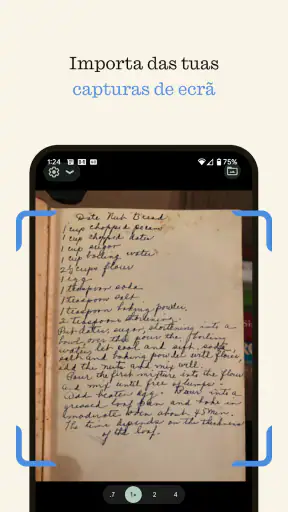 Importa das tuas
capturas de ecrã
1:24
75%
Date Nut Bread
1 cup chopped pecans
1 cup chopped dates
1 cup sugar
1 cup boiling water
2½ cups flour
1 egg
1 teaspoon soda
1 teaspoon salt
1 teaspoon baking powder
2 teaspoons shortening.
Put dates, sugar, shortening into a
bowl over this pour the boiling
water, let cool and sift soda,
salt and baking powder with flour,
add the nuts and mix well.
Pour the first mixture into the flour
and mix until free of lumps.
Add beaten egg. Pour into a
greased loaf pan and bake in
moderate oven about 45 min.
The time depends on the thickness
of the loaf.
.7 1× 2 4